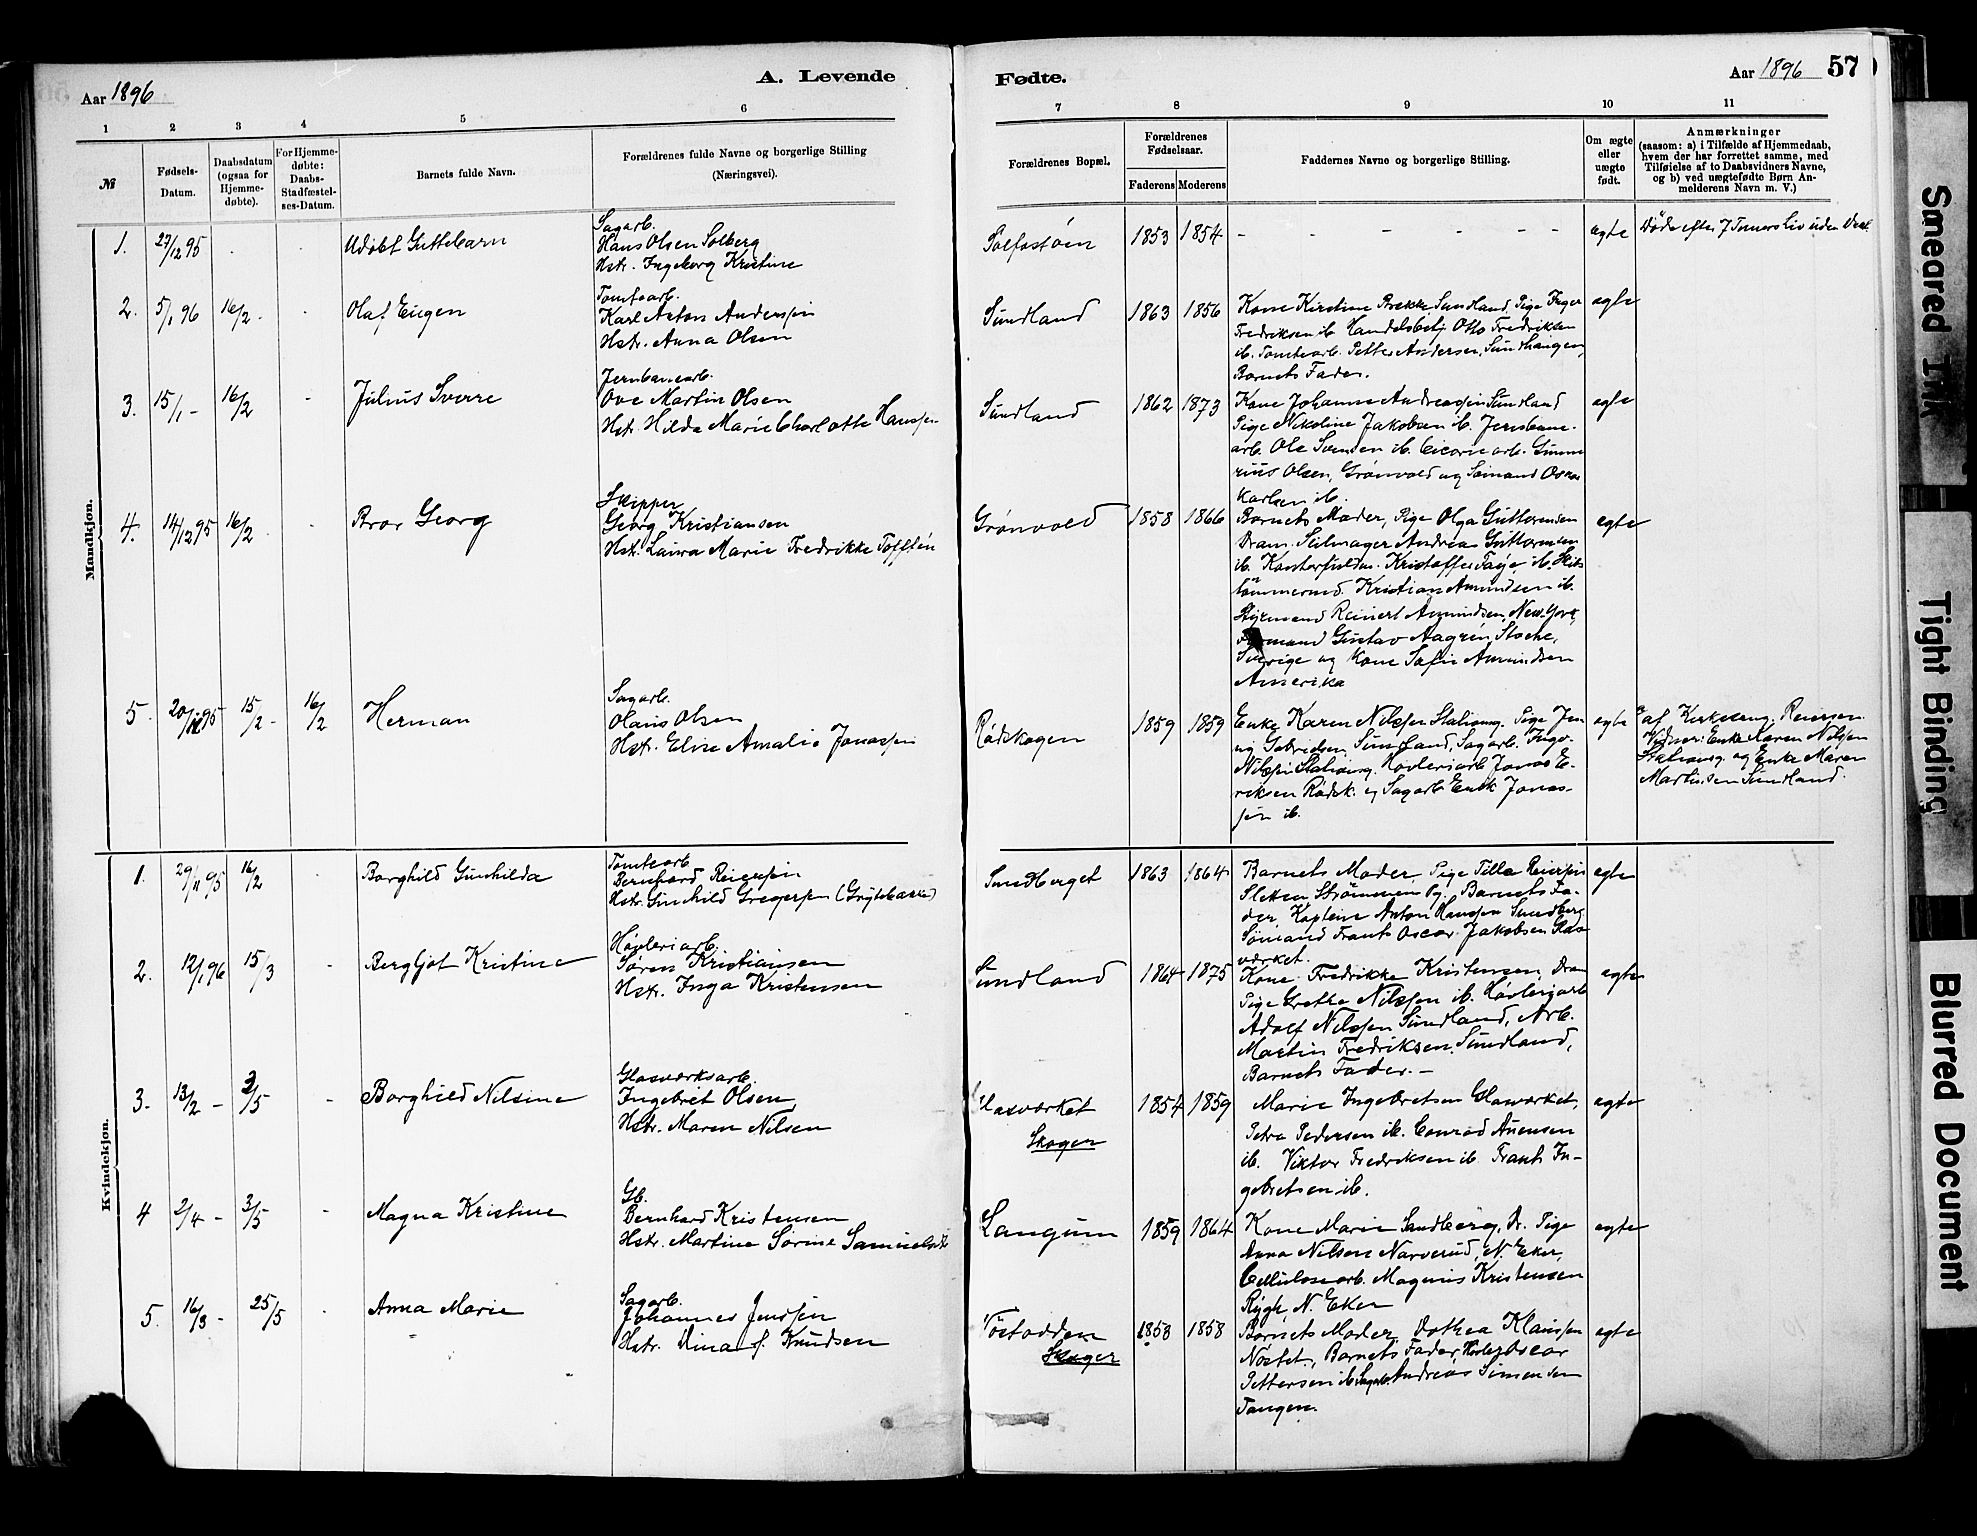 Aar 1896
A. Levende
Fødte.
Aar 1896
57
1 2 3 4 5 6 7 8 9 10 11
№
Fødsels-
Datum.
Daabsdatum
(ogsaa for
Hjemme-
døbte).
For Hjemme-
døbte:
Daabs-
Stadfæstel-
ses-Datum.
Barnets fulde Navn.
Forældrenes fulde Navne og borgerlige Stilling
(Næringsvei).
Forældrenes Bopæl.
Forældrenes
Fødselsaar.
Faderens Moderens
Faddernes Navne og borgerlige Stilling.
Om ægte
eller
uægte
født.
Anmærkninger
(saasom: a) i Tilfælde af Hjemmedaab,
hvem der har forrettet samme, med
Tilføielse af to Daabsvidners Navne,
og b) ved uægtefødte Børn An-
melderens Navn m. V.)
Mandkjøn.
1. 27/12 95 Udøbt Guttebarn
Sagarb.
Hans Olsen Solberg
Hstr. Ingeborg Kristine
1853 1854 - - - - - - - ægte
Døde efter 7 Timers Liv uden
2. 5/1 96 16/2 Olaf Eugen
Tomtearb.
Karl Anton Anderssen
Hstr. Anna Olsen
Sundland 1863 1856
Kone Kirstine Brække Sundland, Pige Inger
Fredriksen ib. Handelsbetj. Otto Fredriksen
ib. Tomtearb. Petter Andersen, Sundhaugen,
Barnets Fader.
ægte
3. 15/1 - 16/2 Julius Sverre
Jernbanearb.
Ove Martin Olsen
Hstr. Hilda Marie Charlotte Hanssen
Sundland 1862 1873
Kone Johanne Andreassen Sundland
Pige Nikoline Jakobsen ib. Jernbane-
arb. Ole Svendsen ib. Cicoriearb. Gunne-
rius Olsen, Grønvold og Sømand Oskar
Karlsen ib.
ægte
4. 14/12 95 16/2 Bror Georg
Skipper
Georg Kristiansen
Hstr. Laura Marie Fredrikke Tofftén
Grønvold 1858 1866
Barnets Moder, Pige Olga Guttormsen
Dram. Seilmager Andreas Guttormsen
ib. Kontorfuldm. Kristoffer Faye ib. Skibs
tømmermd. Kristian Amundsen ib.
Styrmand Reinert Amundsen, New York,
Gustav Aagrén, Stoche,
Sverige og Kone Sofie Amundsen
Amerika
ægte
5. 20/11 95 15/2 - 16/2 Herman
Sagarb.
Olaus Olsen
Hstr. Elise Amalie Jonassen
Rødskogen 1859 1859
Enke Karen Nilssen Stationsg. Pige Jen-
ny Gabrielsen Sundland, Sagarb. Ingv.
Nilssen Stationsg. Høvleriarb Jonas E-
riksen Rødsk. og Sagarb Erik Jonas-
sen ib.
ægte
af Kirkesang. Reiersen.
Vidner: Enke Karen Nilssen
Stationsg. og Enke Maren
Martinsen Sundland.
Kvindekjøn.
1. 29/11 95 16/2 Borghild Gunhilda
Tomtearb
Bernhard Reierssen
Hstr. Gunhild Gregerssen (Grytebakke)
Sundberget 1863 1864
Barnets Moder Pige Tilla Reierssen
Sletten Strømmen Og. Barnets Fa-
der Kaptein Anton Hanssen Sundberg.
Sømand Frants Oscar Jakobsen Glas-
værket.
ægte
2. 12/1 96 15/3 Bergljot Kristine
Høvleriarb.
Søren Kristiansen
Hstr. Inga Kristensen
Sundland 1864 1875
Kone Fredrikke Kristensen, Dram
Pige Grethe Nilssen ib. Høvleriarb
Adolf Nilssen Sundland, Arb.
Martin Fredriksen, Sundland,
Barnets Fader. -
ægte
3. 13/2 - 3/5 Borghild Nilsine
Glasværksarb.
Ingebret Olsen
Hstr. Maren Nilsen
Glasværket
Skoger
1854 1859
Marie Ingebretsen Glasværket,
Petra Pedersen ib. Conrad Auensen
ib. Viktor Fredriksen ib. Frants In-
gebretsen ib.
ægte
4 2/4 - 3/5 Magna Kristine
Gb.
Bernhard Kristensen
Hstr. Martine Sørine
Langum 1859 1864
Kone Marie Sandberg, Dr. Pige
Anna Nilsen Narverud, N. Eker,
Cellulosearb. Magnus Kristensen
Rygh N. Eker
ægte
5. 16/3 - 25/5 Anna Marie
Sagarb.
Johannes Jenssen
Hstr. Dina J. Knudsen
Tørtodden
Skoger
1853 1858
Barnets Moder, Dorthea Klaussen
Nøstet, Barnets Fader, Oscar
Pettersen ib. Sagarb. Andreas Simensen
Tangen.
ægte
Smeared Ink
Tight Binding
Blurred Document